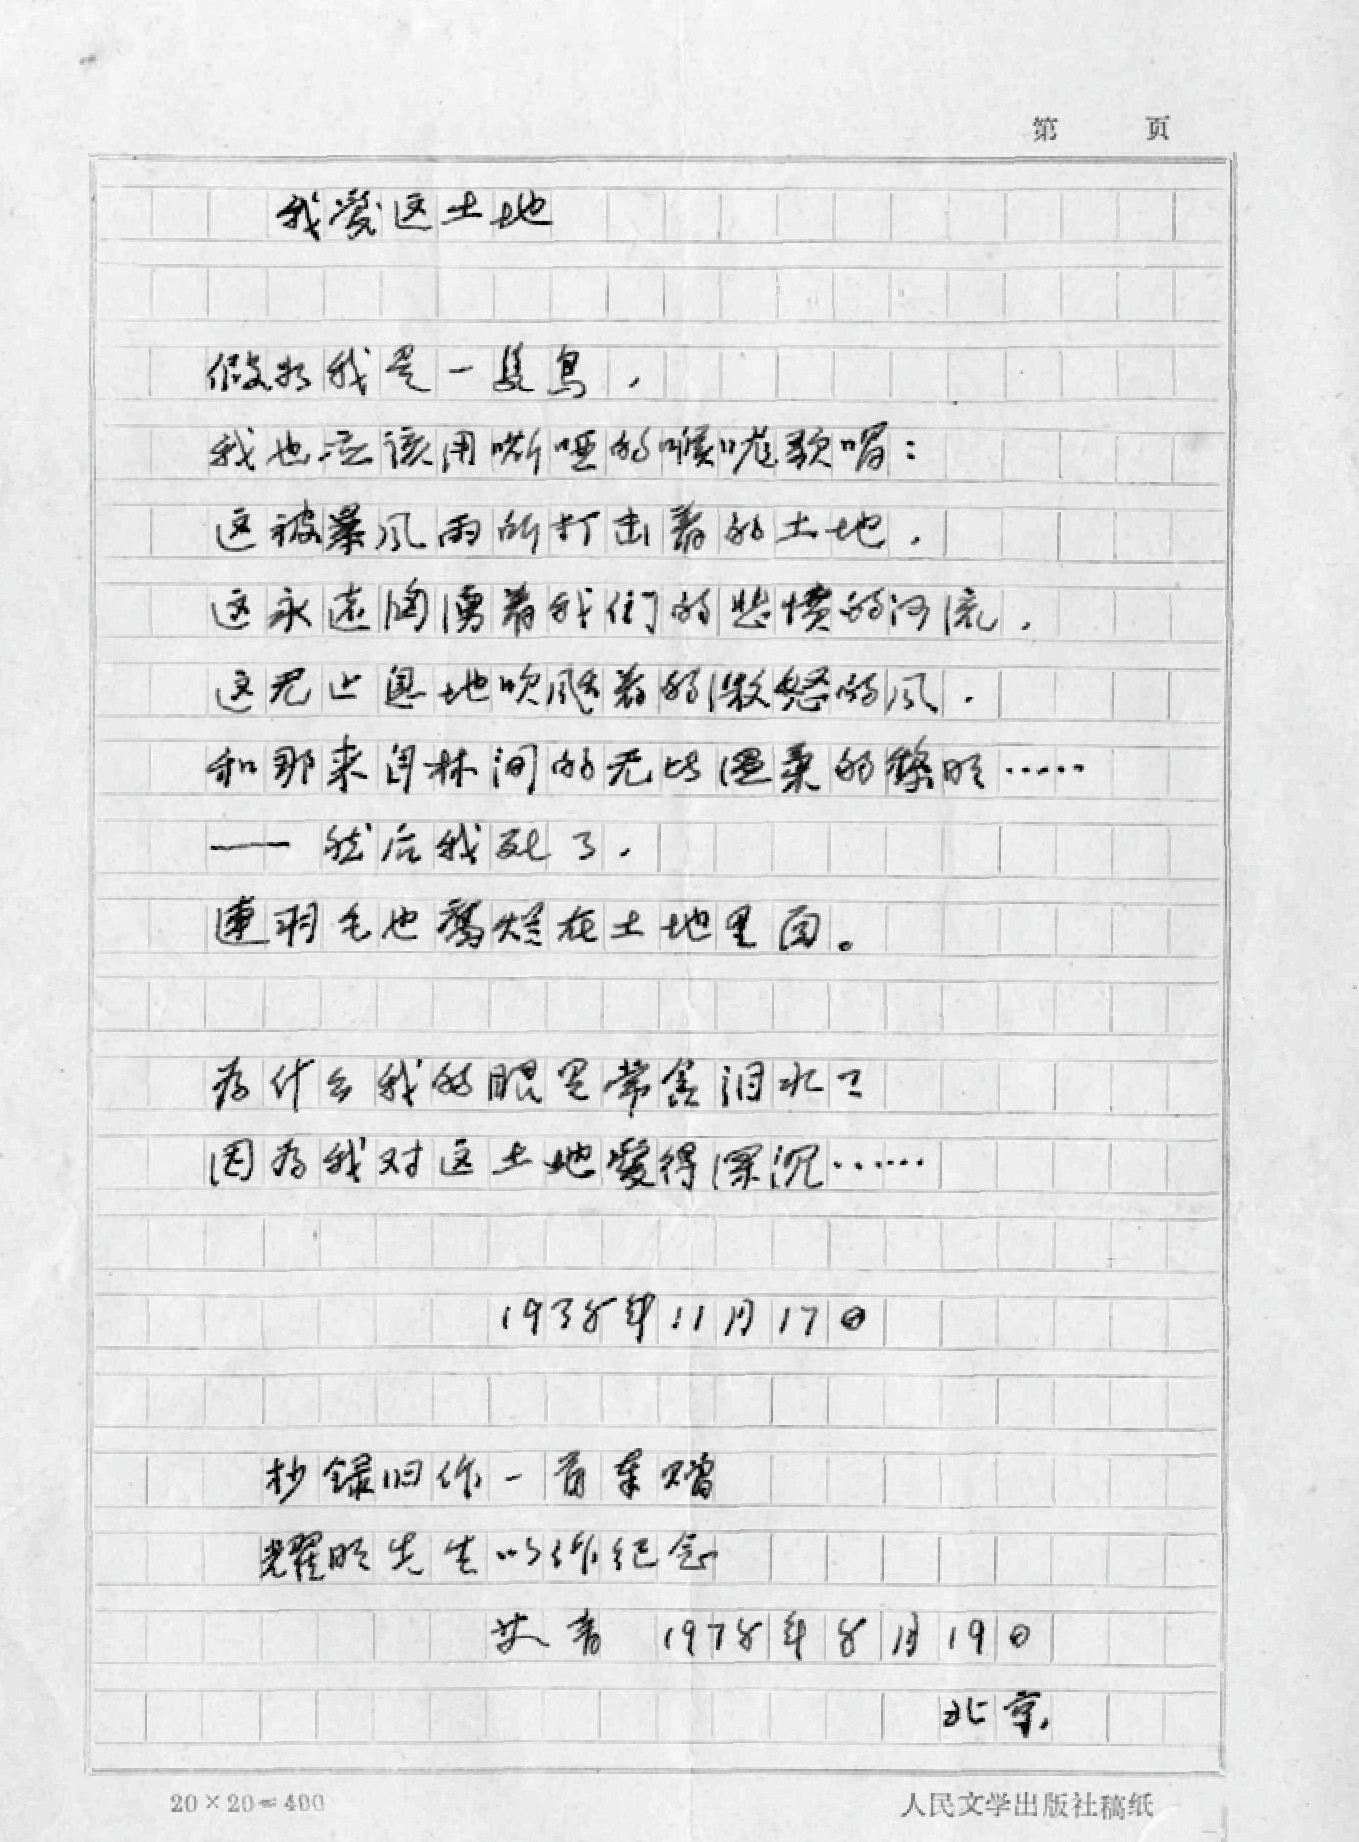 第 页
我爱这土地
假如我是一隻鸟,
我也应该用嘶哑的喉咙歌唱:
这被暴风雨所打击着的土地,
这永远汹湧着我们的悲愤的河流,
这无止息地吹颳着的激怒的风,
和那来自林间的无比温柔的黎明……
——然后我死了,
連羽毛也腐烂在土地里面。
為什么我的眼里常含泪水?
因為我对这土地愛得深沉……
1938年11月17日
抄録旧作一首奉赠
耀明先生以作纪念
艾青 1978年8月19日
北京.
20×20=400
人民文学出版社稿纸